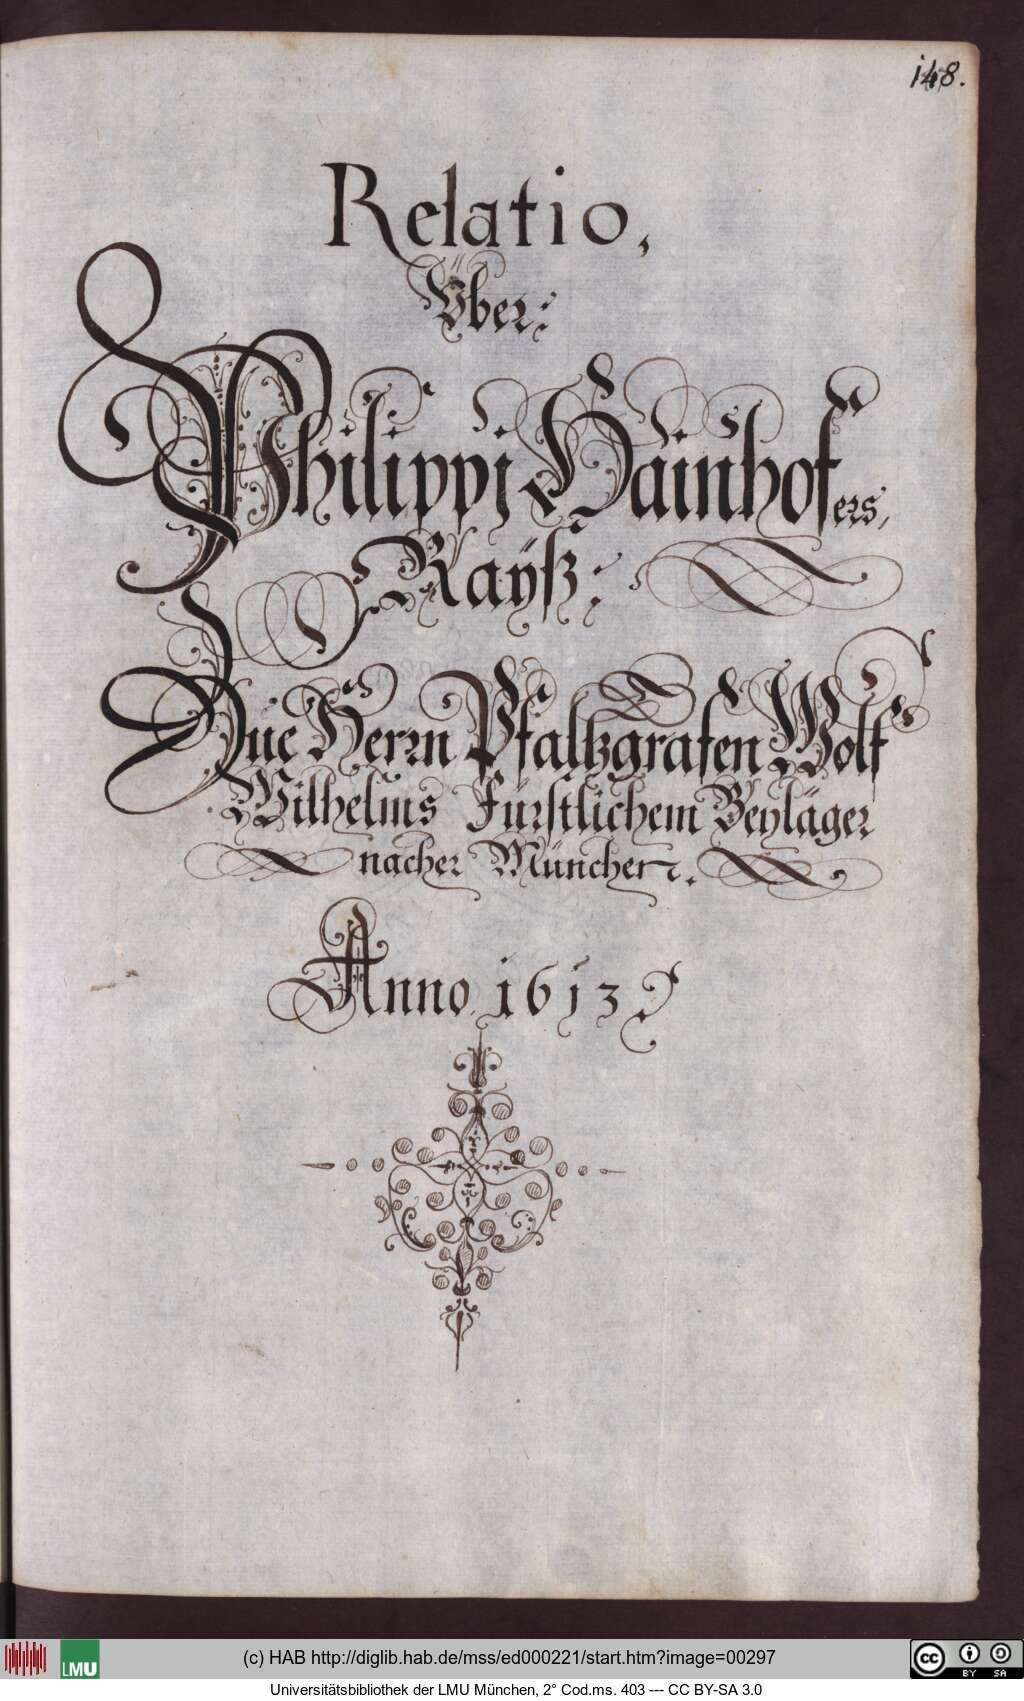 148.
Relatio,
Über:
Philippi Hainhofers,
Rayß:
Zue Herrn Pfaltzgrafen Wolf
Wilhelms Fürstlichem Beyläger
nacher München.
Anno 1613
LMU
(c) HAB http://diglib.hab.de/mss/ed000221/start.htm?image=00297
cc BY SA
Universitätsbibliothek der LMU München, 2° Cod.ms. 403 --- CC BY-SA 3.0